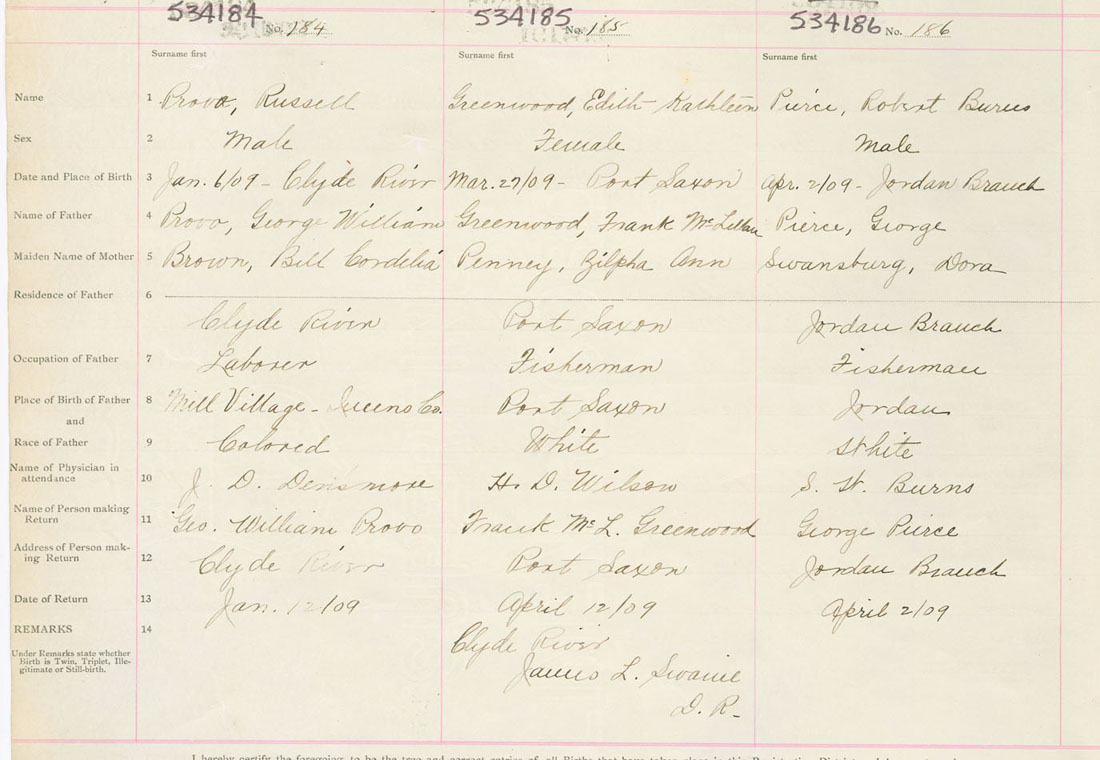 534184 534185 534186
No. 184 No. 185 No. 186
Surname first Surname first Surname first
Name 1 Provo, Russell Greenwood, Edith Kathleen Pierce, Robert Burns
Sex 2 Male Female Male
Date and Place of Birth 3 Jan. 6/09 - Clyde River Mar. 27/09 - Port Saxon Apr. 2/09 - Jordan Branch
Name of Father 4 Provo, George William Greenwood, Frank McLellan Pierce, George
Maiden Name of Mother 5 Brown, Bell Cordelia Penney, Zilpha Ann Swansburg, Dora
Residence of Father 6
Clyde River Port Saxon Jordan Branch
Occupation of Father 7 Laborer Fisherman Fisherman
Place of Birth of Father 8 Mill Village - Queens Co. Port Saxon Jordan
and
Race of Father 9 Colored White White
Name of Physician in
attendance 10 J. D. Densmore H. D. Wilson S. W. Burns
Name of Person making
Return 11 Geo. William Provo Frank McL. Greenwood George Pierce
Address of Person mak-
ing Return 12 Clyde River Port Saxon Jordan Branch
Date of Return 13 Jan. 12/09 April 12/09 April 2/09
REMARKS 14
Under Remarks state whether
Birth is Twin, Triplet, Ille-
gitimate or Still-birth.
Clyde River
James L. Swaine
D. R.
I hereby certify the foregoing to be the true and correct entries of all Births that have taken place in this Registration District